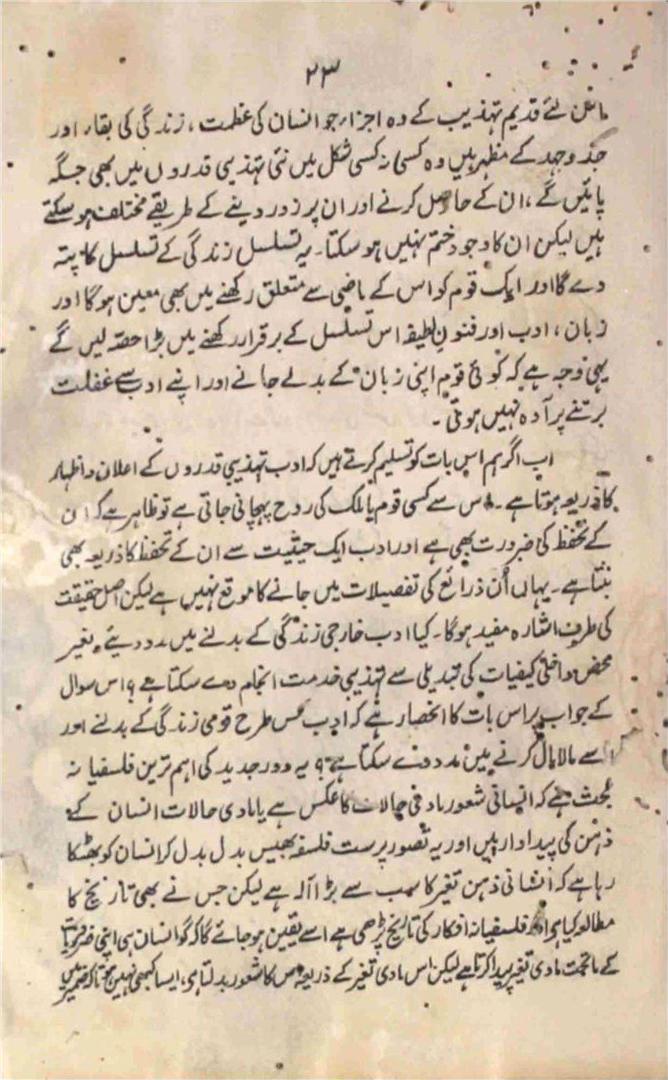 ۲۳
مانعن لئے قدیم تہذیب کے وہ اجزاء جو انسان کی عظمت، زندگی کی بقاء اور
جدوجہد کے مظہر ہیں وہ کسی نہ کسی شکل میں نئی تہذیبی قدروں میں بھی جگہ
پائیں گے، ان کے حاصل کرنے اور ان پر زور دینے کے طریقے مختلف ہو سکتے
ہیں لیکن ان کا وجود ختم نہیں ہو سکتا۔ یہ تسلسل زندگی کے تسلسل کا پتہ
دے گا اور ایک قوم کو اس کے ماضی سے متعلق رکھنے میں بھی معین ہوگا اور
زبان، ادب اور فنونِ لطیفہ اس تسلسل کے برقرار رکھنے میں بڑا حصہ لیں گے
یہی وجہ ہے کہ کوئی قوم اپنی زبان کے بدلے جانے اور اپنے ادب سے غفلت
برتنے پر آمادہ نہیں ہوتی۔
اب اگر ہم اس بات کو تسلیم کرتے ہیں کہ ادب تہذیبی قدروں کے اعلان و اظہار
کا ذریعہ ہوتا ہے۔ اس سے کسی قوم یا ملک کی روح پہچانی جاتی ہے تو ظاہر ہے کہ ان
کے تحفظ کی ضرورت بھی ہے اور ادب ایک حیثیت سے ان کے تحفظ کا ذریعہ بھی
بنتا ہے۔ یہاں اُن ذرائع کی تفصیلات میں جانے کا موقع نہیں ہے لیکن اصل حقیقت
کی طرف اشارہ مفید ہوگا۔ کیا ادب خارجی زندگی کے بدلنے میں مدد دیئے بغیر
محض داخلی کیفیات کی تبدیلی سے تہذیبی خدمت انجام دے سکتا ہے؟ اس سوال
کے جواب پر اس بات کا انحصار ہے کہ ادب کس طرح قومی زندگی کے بدلنے اور
اسے مالامال کرنے میں مدد دے سکتا ہے؟ یہ دور جدید کی اہم ترین فلسفیانہ
بحث ہے کہ انسانی شعور مادی حالات کا عکس ہے یا مادی حالات انسان کے
ذہن کی پیداوار ہیں اور یہ تصور پرست فلسفہ بھیس بدل بدل کر انسان کو بھٹکا
رہا ہے کہ انسانی ذہن تغیر کا سب سے بڑا آلہ ہے لیکن جس نے بھی تاریخ کا
مطالعہ کیا ہے اور فلسفیانہ افکار کی تاریخ پڑھی ہے اسے یقین ہو جائے گا کہ گو انسان ہی اپنی ضروریات
کے ماتحت مادی تغیر پیدا کرتا ہے لیکن اس مادی تغیر کے ذریعہ اس کا شعور بدلتا ہے، ایسا کبھی نہیں ہوتا کہ